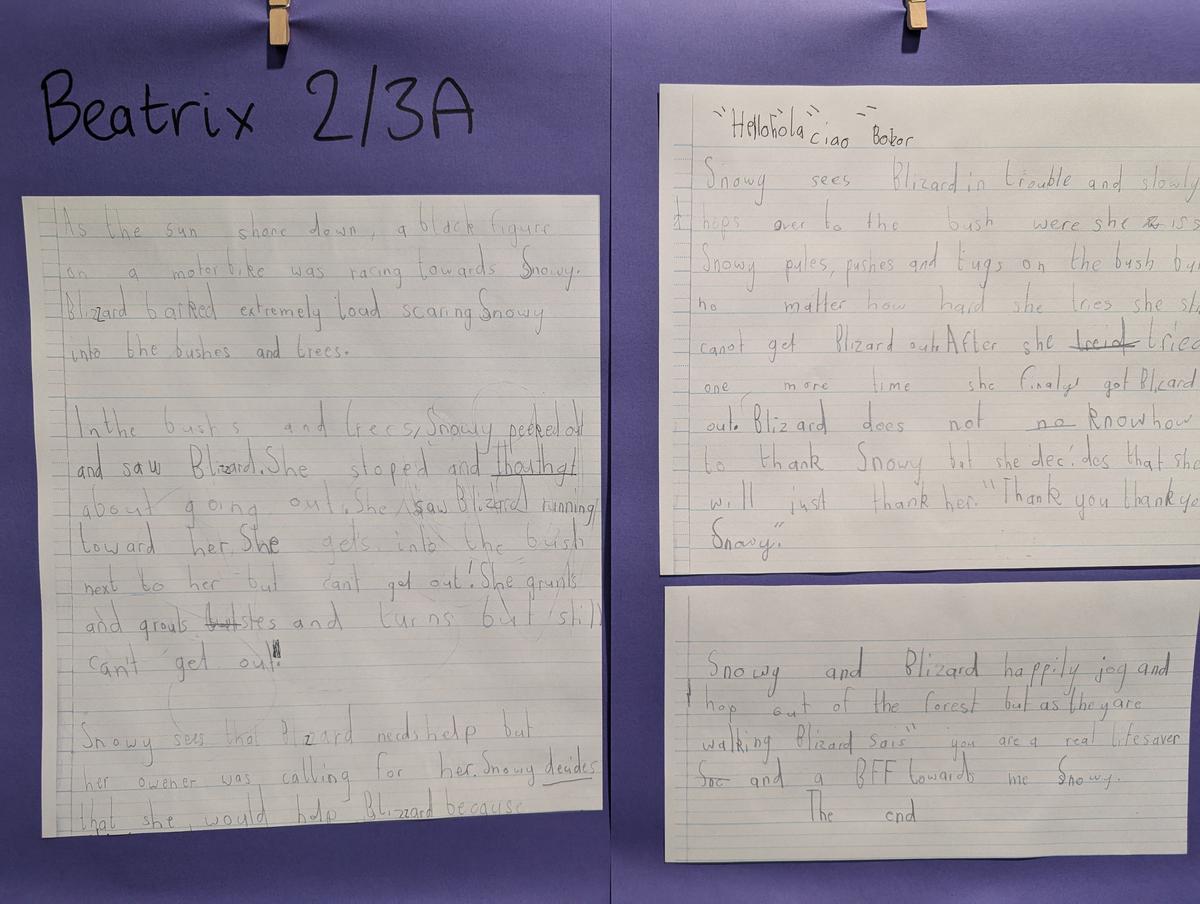 Beatrix 2/3A
As the sun shone down, a black figure
on a motorbike was racing towards Snowy.
Blizzard barked extremely load scaring Snowy
into the bushes and trees.
In the bushs and trees, Snowy peeked out
and saw Blizzard. She stoped and thouthgt
about going out. She saw Blizard running
toward her. She gets into the bush
next to her but can't get out! She grunts
and grouls stes and turns but still
can't get out!
Snowy sees that Blizard needs help but
her owener was calling for her. Snowy decides
that she would help Blizzard because
"Hello" hola" ciao" Bokor
Snowy sees Blizard in trouble and slowly
hops over to the bush were she is s
Snowy pules, pushes and tugs on the bush
no matter how hard she tries she
canot get Blizard out. After she treid tried
one more time she finaly got Blizard
out. Blizard does not no know how
to thank Snowy but she decides that she
will just thank her. "Thank you thank
Snowy."
Snowy and Blizard happily jog and
hop out of the forest but as they are
walking Blizard sais" you are a real lifesaver
and a BFF towards me Snowy.
The end